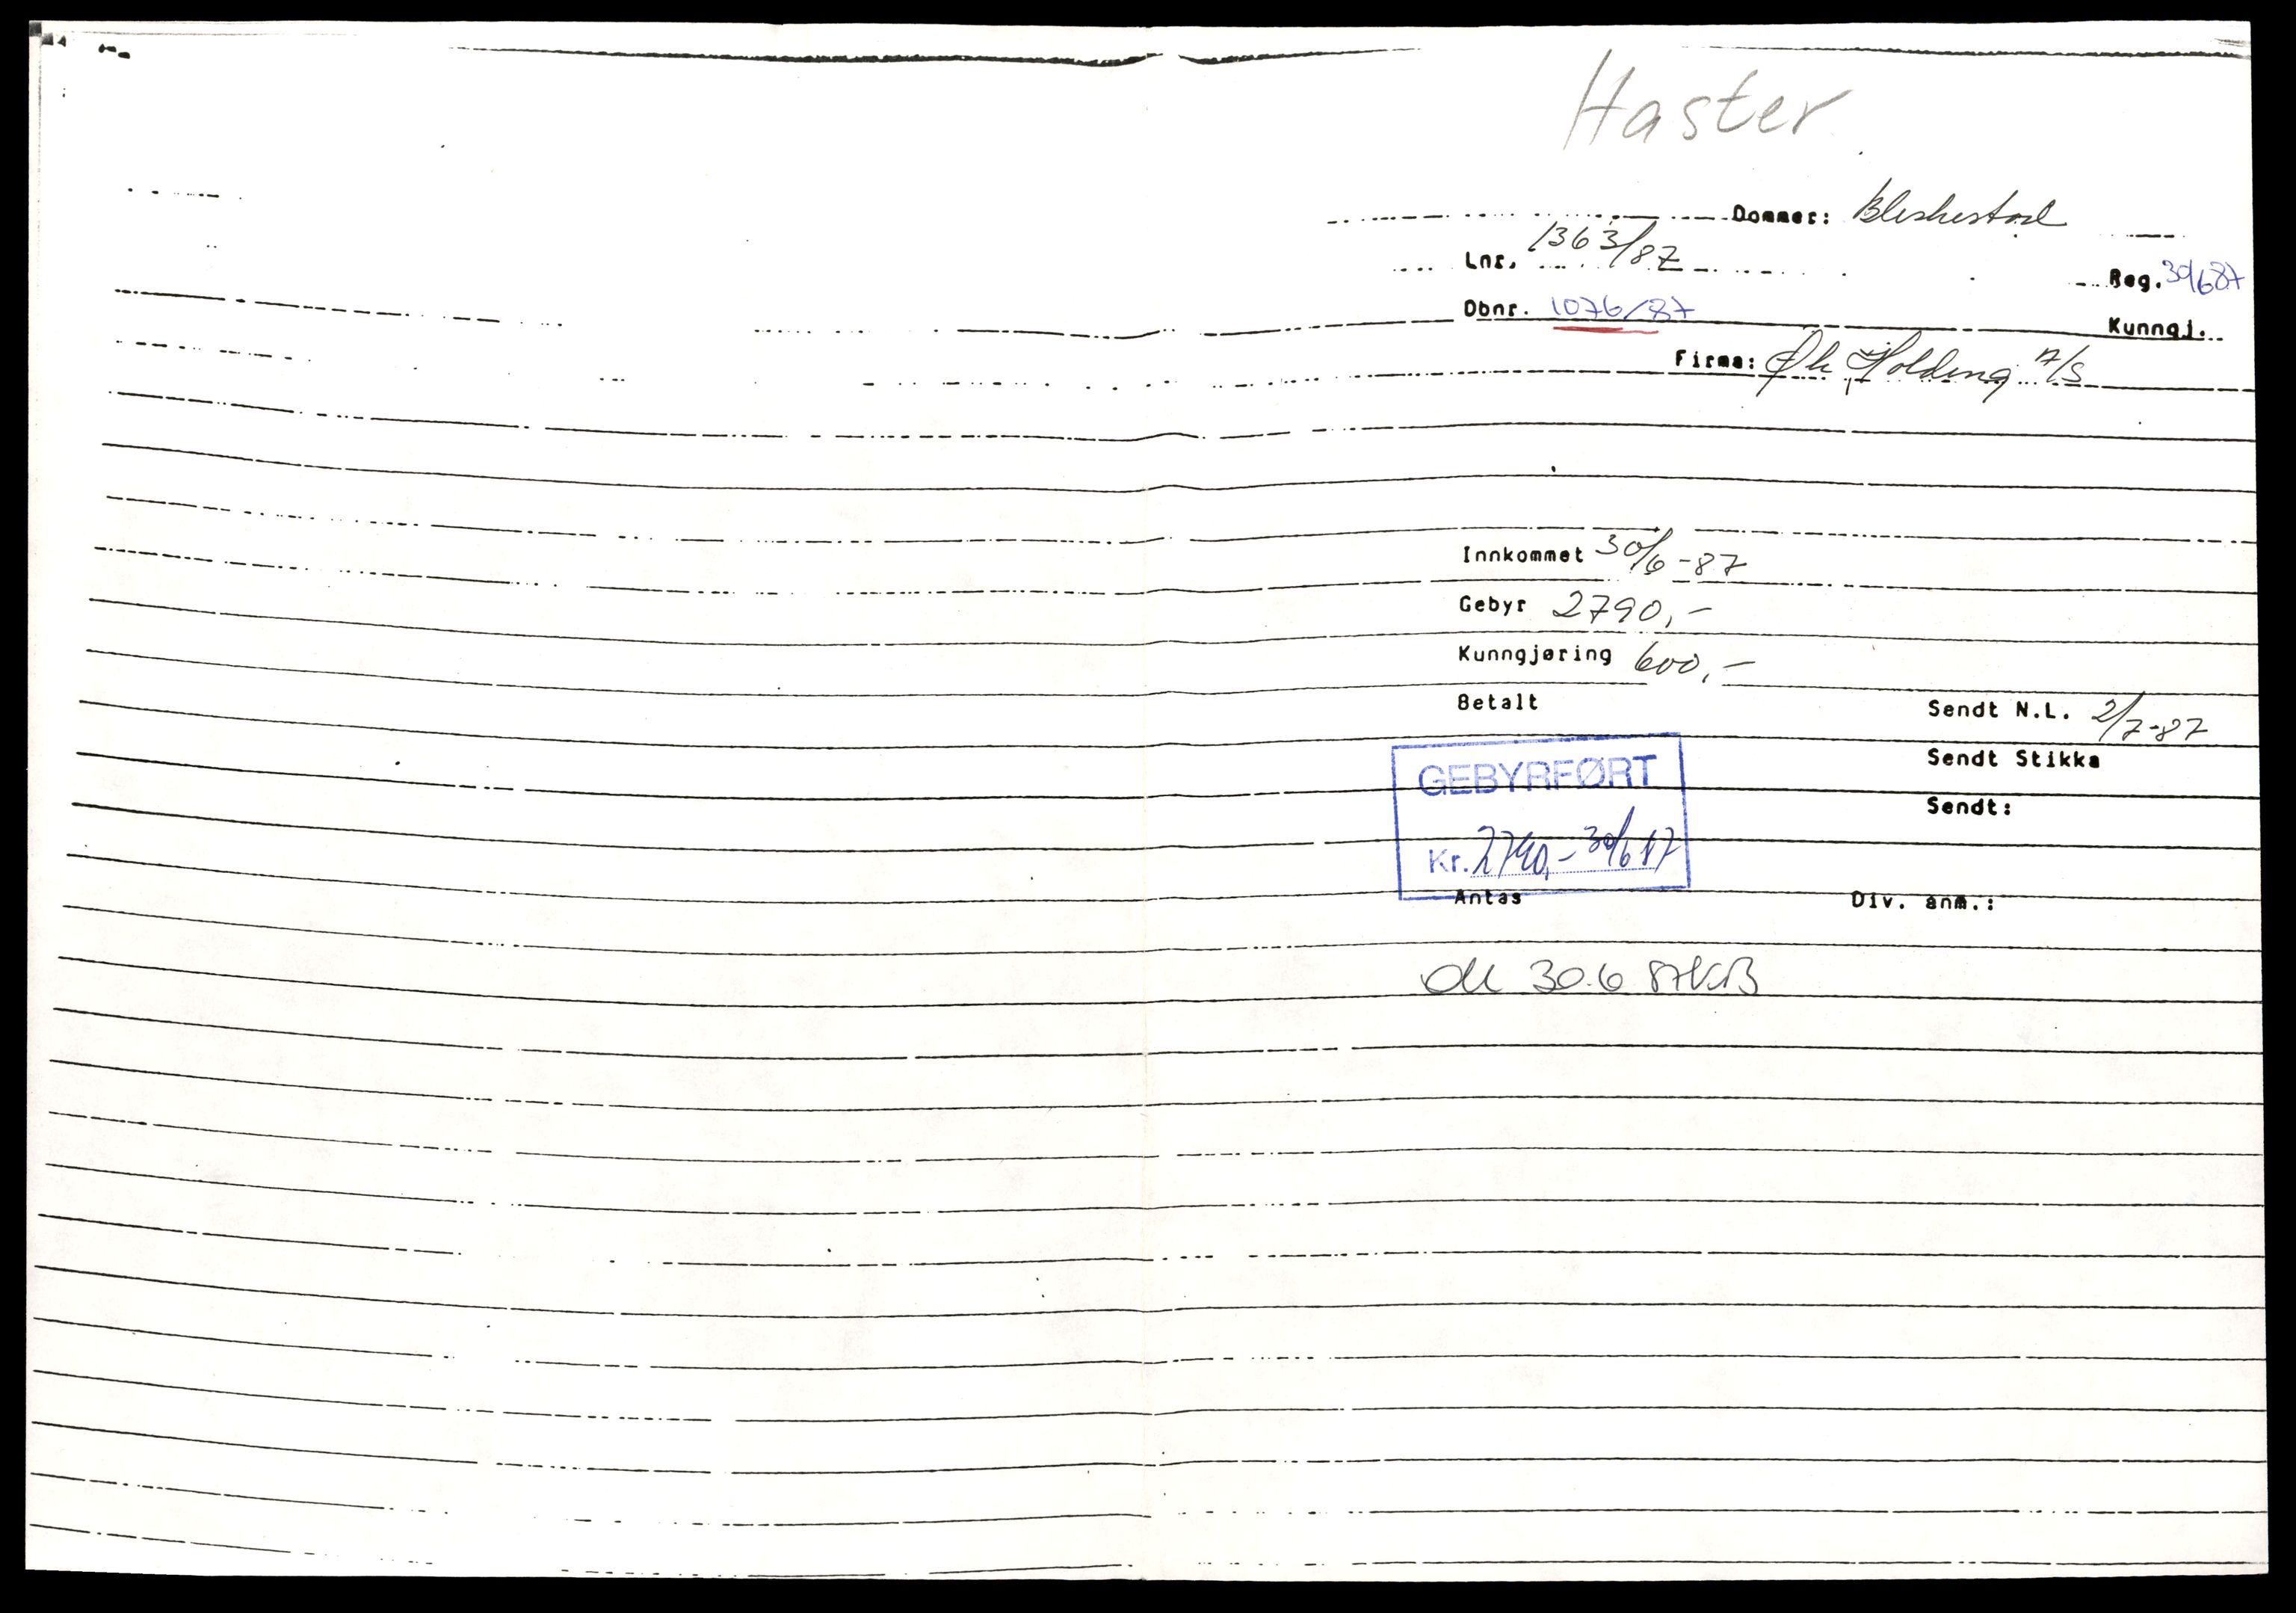 Haster
Dommer: Bleshestad
Lnr. 1363/87
Reg. 30/6 87
Dbnr. 1076/87
Kunngj.
Firma: Øk Holding A/S
Innkommet 30/6-87
Gebyr 2790,-
Kunngjøring 600,-
Betalt
Sendt N.L. 2/7-87
Sendt Stikka
GEBYRFØRT
Sendt:
Kr. 2790,- 30/6 87
Antas
Div. anm.:
OK 30.6 87